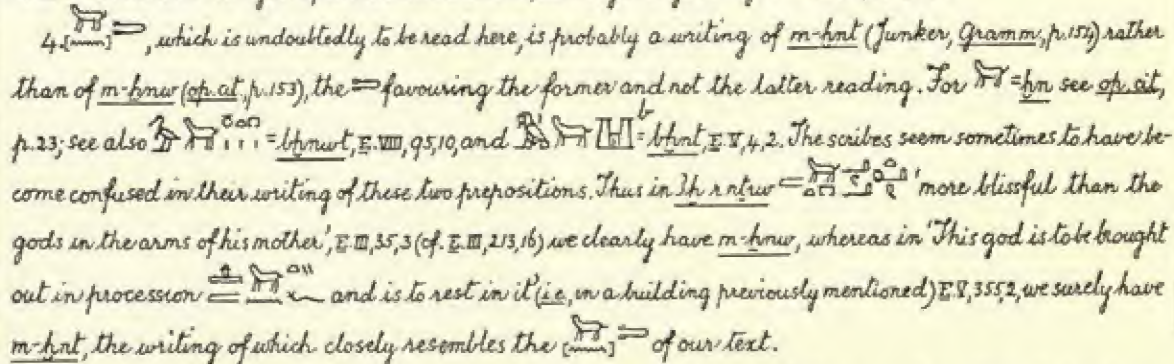 4. , which is undoubtedly to be read here, is probably a writing of m-ḫnt (Junker, Gramm., p. 154) rather
than of m-ẖnw (op. cit., p. 153), the favouring the former and not the latter reading. For = ḫn see op. cit.,
p. 23; see also = bḫnwt, E. VIII, 95, 10, and = bḫnt, E. V, 4, 2. The scribes seem sometimes to have be-
come confused in their writing of these two prepositions. Thus in ꜣḫ r nṯrw 'more blissful than the
gods in the arms of his mother', E. III, 35, 3 (cf. E. III, 213, 16) we clearly have m-ẖnw, whereas in 'This god is to be brought
out in procession and is to rest in it' (i.e., in a building previously mentioned) E. V, 355, 2, we surely have
m-ḫnt, the writing of which closely resembles the of our text.